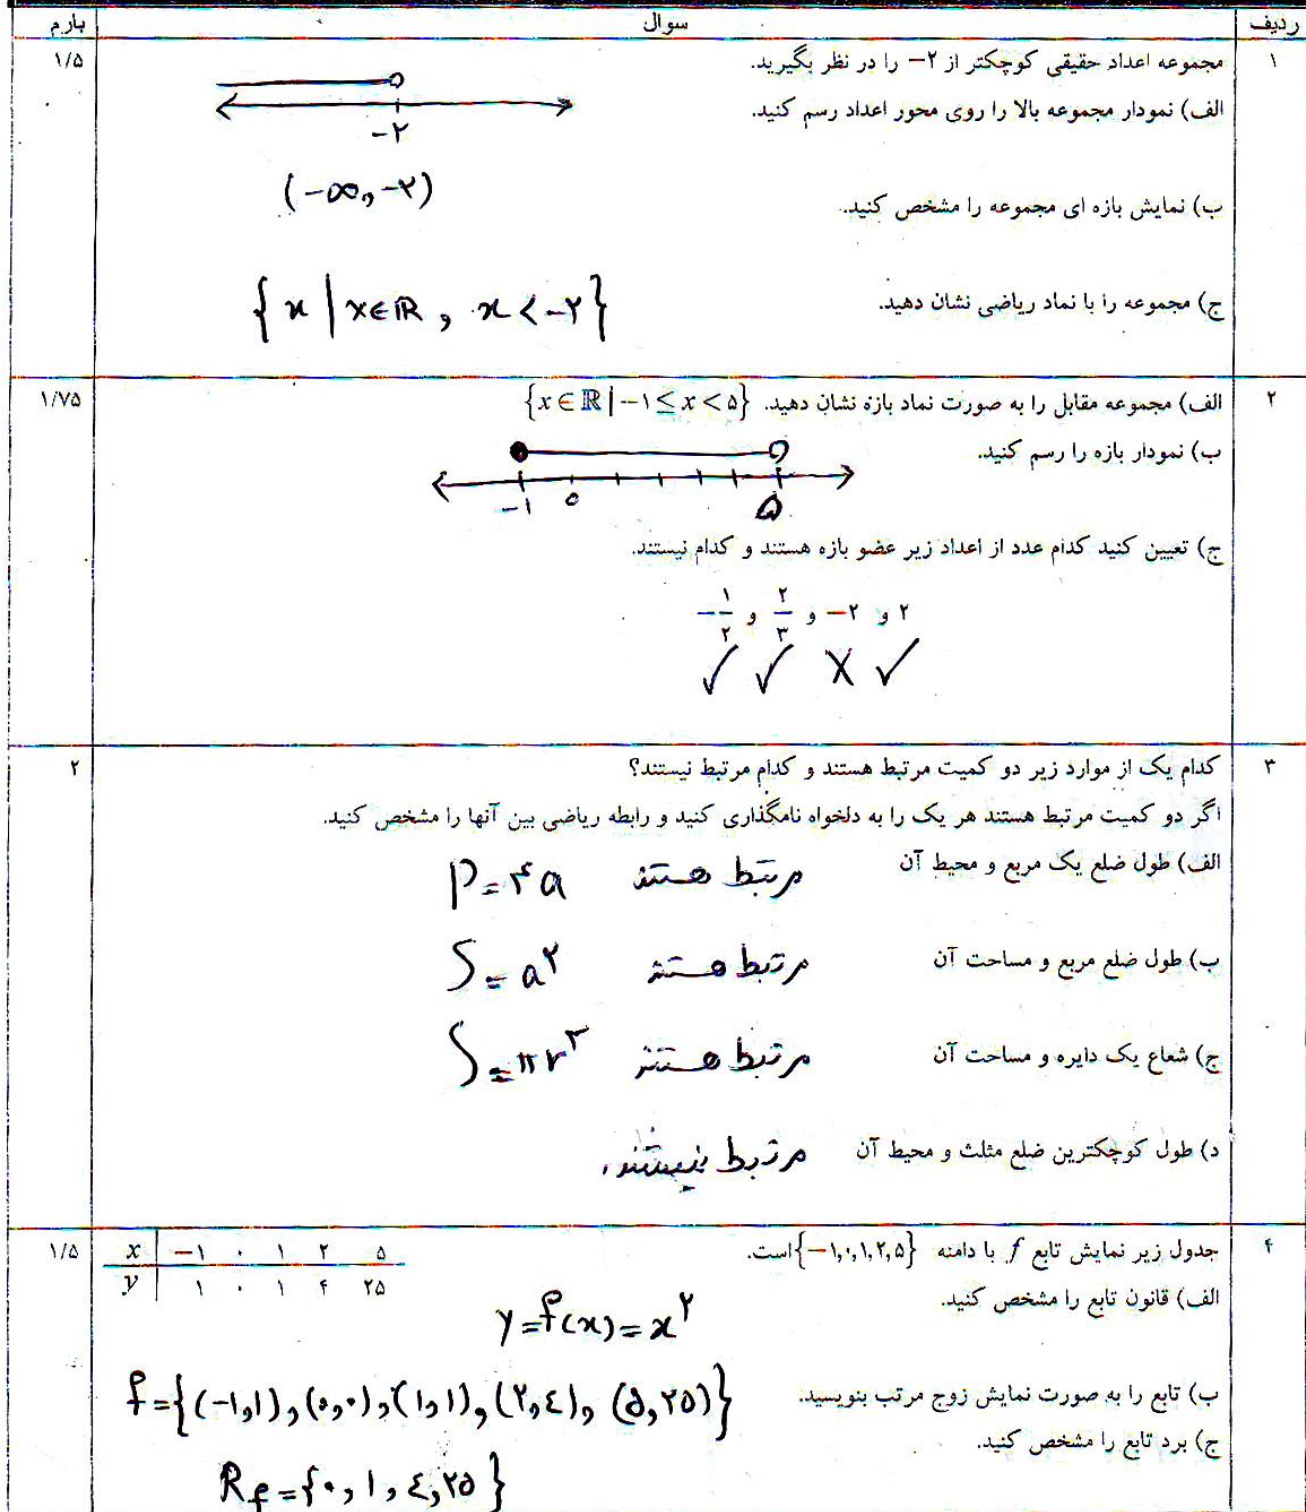 ردیف سوال بارم
۱ مجموعه اعداد حقیقی کوچکتر از ۲− را در نظر بگیرید. ۱/۵
الف) نمودار مجموعه بالا را روی محور اعداد رسم کنید.
−۲
ب) نمایش بازه ای مجموعه را مشخص کنید. (−∞, −۲)
ج) مجموعه را با نماد ریاضی نشان دهید. {x | x∈ℝ , x < −۲}
۲ الف) مجموعه مقابل را به صورت نماد بازه نشان دهید. {x∈ℝ | −۱ ≤ x < ۵} ۱/۷۵
ب) نمودار بازه را رسم کنید.
−۱ ۰ ۵
ج) تعیین کنید کدام عدد از اعداد زیر عضو بازه هستند و کدام نیستند.
۲ و −۲ و ۲/۳ و −۱/۲
✓ ✓ X ✓
۳ کدام یک از موارد زیر دو کمیت مرتبط هستند و کدام مرتبط نیستند؟ ۲
اگر دو کمیت مرتبط هستند هر یک را به دلخواه نامگذاری کنید و رابطه ریاضی بین آنها را مشخص کنید.
الف) طول ضلع یک مربع و محیط آن مرتبط هستند P=۴a
ب) طول ضلع مربع و مساحت آن مرتبط هستند S=a²
ج) شعاع یک دایره و مساحت آن مرتبط هستند S=πr²
د) طول کوچکترین ضلع مثلث و محیط آن مرتبط نیستند.
۴ جدول زیر نمایش تابع f با دامنه {−۱,۰,۱,۲,۵} است. ۱/۵
x −۱ ۰ ۱ ۲ ۵
y ۱ ۰ ۱ ۴ ۲۵
الف) قانون تابع را مشخص کنید.
y=f(x)=x²
ب) تابع را به صورت نمایش زوج مرتب بنویسید. f={(−۱,۱),(۰,۰),(۱,۱),(۲,٤),(۵,۲۵)}
ج) برد تابع را مشخص کنید.
R_f={۰,۱,٤,۲۵}